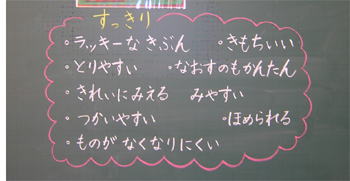 すっきり
・ラッキーなきぶん ・きもちいい
・とりやすい ・なおすのもかんたん
・きれいにみえる みやすい
・つかいやすい ・ほめられる
・ものがなくなりにくい